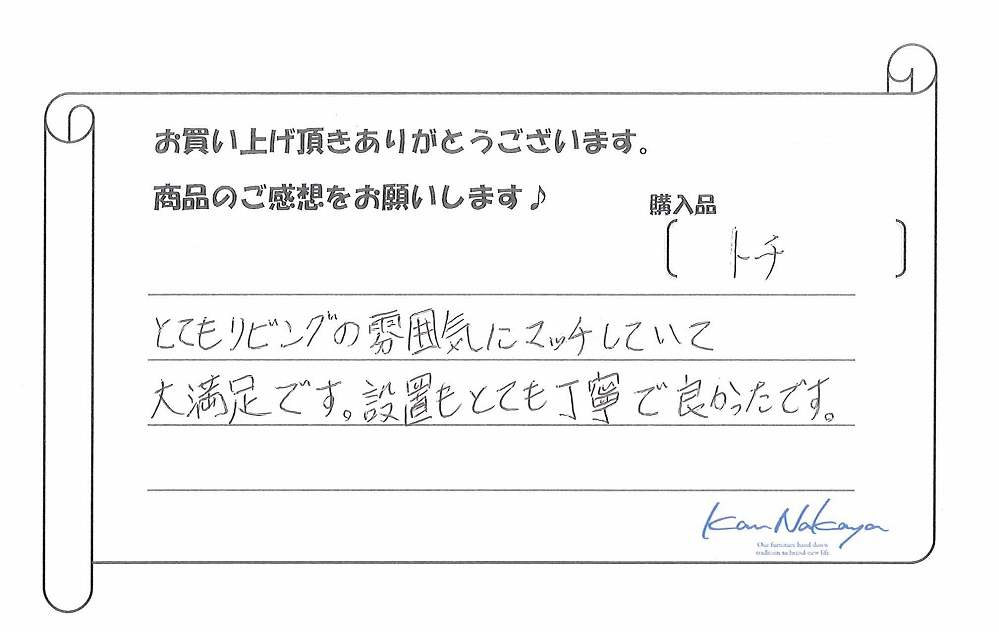 お買い上げ頂きありがとうございます。
商品のご感想をお願いします♪
購入品
〔 トチ 〕
とてもリビングの雰囲気にマッチしていて
大満足です。設置もとても丁寧で良かったです。
Kan Nakaya
Our furniture hand down
tradition to brand-new life.